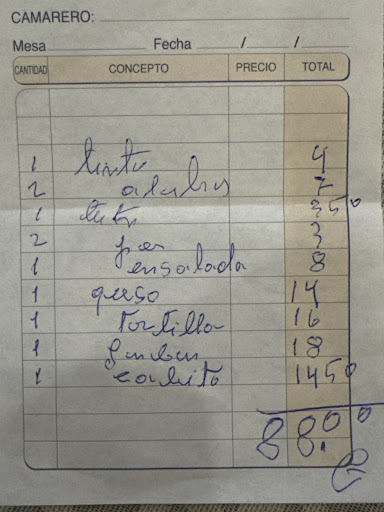 CAMARERO:
Mesa Fecha / /
CANTIDAD CONCEPTO PRECIO TOTAL
1 tinto 4
2 7
1 tinto 350
2 pan 3
1 ensalada 8
1 queso 14
1 Tortilla 16
1 18
1 1450
88.00